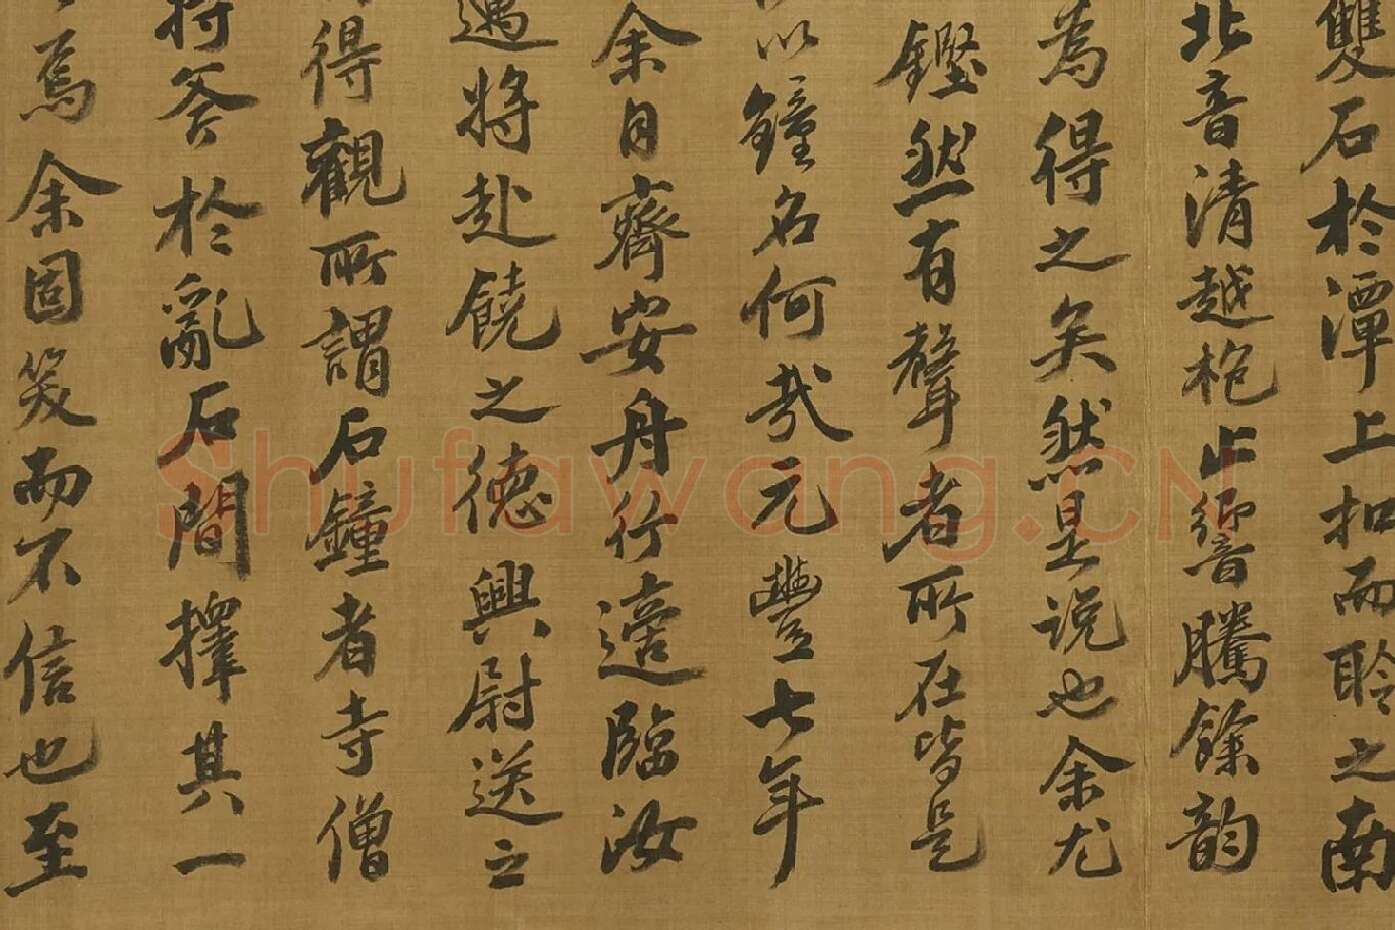 雙石於潭上扣而聆之南
北音清越枹止響騰餘韵
為得之矣然是说也余尤
鏗然有聲者所在皆是
以鐘名何哉元豐七年
余自齊安舟行適臨汝
邁將赴饒之德興尉送之
得觀所謂石鐘者寺僧
持斧於亂石間擇其一
焉余固笑而不信也至
Shufawang.CN